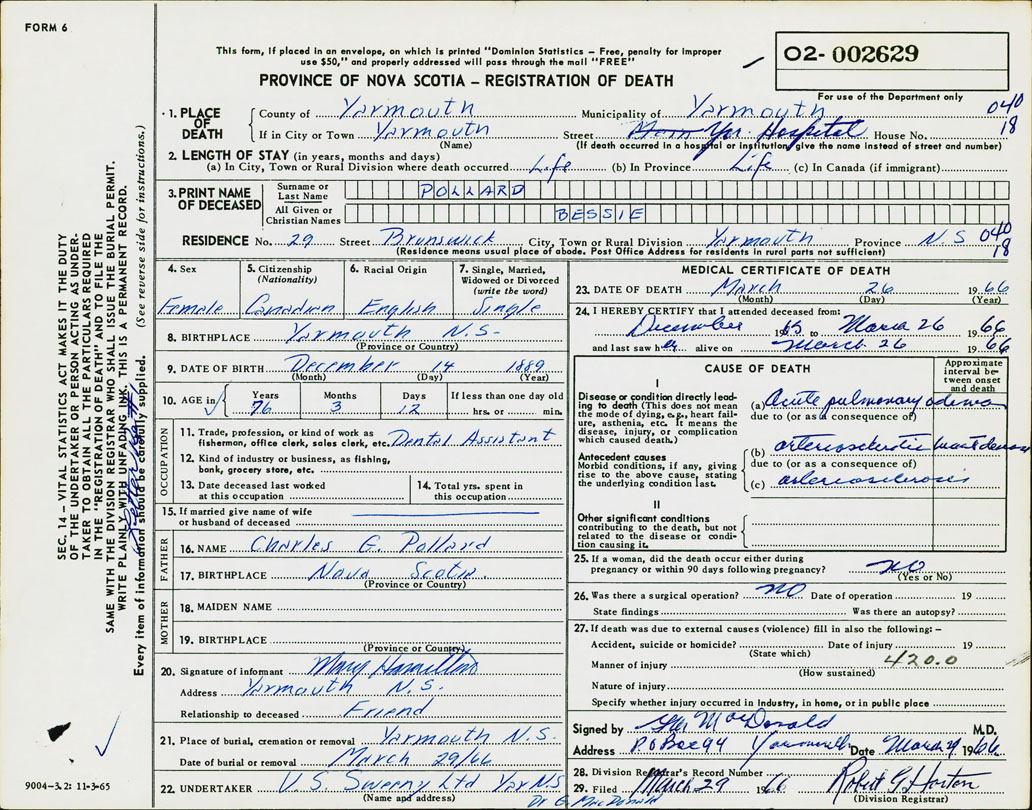 FORM 6
This form, if placed in an envelope, on which is printed "Dominion Statistics – Free, penalty for improper
use $50," and properly addressed will pass through the mail "FREE"
O2- 002629
PROVINCE OF NOVA SCOTIA – REGISTRATION OF DEATH
For use of the Department only
1. PLACE OF DEATH County of Yarmouth Municipality of Yarmouth 040
If in City or Town Yarmouth Street Yar. Hospital House No. 18
(Name) (If death occurred in a hospital or institution, give the name instead of street and number)
2. LENGTH OF STAY (in years, months and days)
(a) In City, Town or Rural Division where death occurred Life (b) In Province Life (c) In Canada (if immigrant)
3. PRINT NAME OF DECEASED Surname or Last Name POLLARD
All Given or Christian Names BESSIE
RESIDENCE No. 29 Street Brunswick City, Town or Rural Division Yarmouth Province N.S 040
(Residence means usual place of abode. Post Office Address for residents in rural parts not sufficient) 18
4. Sex
Female
5. Citizenship
(Nationality)
Canadian
6. Racial Origin
English
7. Single, Married,
Widowed or Divorced
(write the word)
Single
8. BIRTHPLACE Yarmouth N.S-
(Province or Country)
9. DATE OF BIRTH December 14 1889
(Month) (Day) (Year)
10. AGE in Years Months Days If less than one day old
76 3 12 hrs. or min.
OCCUPATION
11. Trade, profession, or kind of work as
fisherman, office clerk, sales clerk, etc. Dental Assistant
12. Kind of industry or business, as fishing,
bank, grocery store, etc.
13. Date deceased last worked
at this occupation
14. Total yrs. spent in
this occupation
15. If married give name of wife
or husband of deceased
FATHER
16. NAME Charles G. Pollard
17. BIRTHPLACE Nova Scotia.
(Province or Country)
MOTHER
18. MAIDEN NAME
19. BIRTHPLACE
(Province or Country)
20. Signature of informant Mary Hamilton
Address Yarmouth N.S.
Relationship to deceased Friend
21. Place of burial, cremation or removal Yarmouth N.S.
Date of burial or removal March 29/66
22. UNDERTAKER V.S. Sweeny Ltd Yar N.S
(Name and address)
Dr G. MacDonald
MEDICAL CERTIFICATE OF DEATH
23. DATE OF DEATH March 26 1966
(Month) (Day) (Year)
24. I HEREBY CERTIFY that I attended deceased from:
December 1965 to March 26 1966
and last saw her alive on March 26 1966
CAUSE OF DEATH
Approximate
interval be-
tween onset
and death
I
Disease or condition directly lead-
ing to death (This does not
mean the mode of dying, e.g., heart fail-
ure, asthenia, etc. It means the
disease, injury, or complication
which caused death.)
(a) Acute pulmonary edema
due to (or as a consequence of)
Antecedent causes
Morbid conditions, if any, giving
rise to the above cause, stating
the underlying condition last.
(b) arteriosclerotic heart disease
due to (or as a consequence of)
(c) arteriosclerosis
II
Other significant conditions
contributing to the death, but not
related to the disease or condi-
tion causing it.
25. If a woman, did the death occur either during
pregnancy or within 90 days following pregnancy? NO
(Yes or No)
26. Was there a surgical operation? NO Date of operation 19
State findings Was there an autopsy?
27. If death was due to external causes (violence) fill in also the following: –
Accident, suicide or homicide? Date of injury 19
(State which) 420.0
Manner of injury
(How sustained)
Nature of injury
Specify whether injury occurred in Industry, in home, or in public place
Signed by GM MacDonald M.D.
Address P O Box 94 Yarmouth Date March 29 1966
28. Division Registrar's Record Number
29. Filed March 29 1966 Robert G. Horton
(Division Registrar)
SEC. 14 – VITAL STATISTICS ACT MAKES IT THE DUTY
OF THE UNDERTAKER OR PERSON ACTING AS UNDER-
TAKER TO OBTAIN ALL THE PARTICULARS REQUIRED
IN THE "REGISTRATION OF DEATH" AND TO FILE THE
SAME WITH THE DIVISION REGISTRAR WHO SHALL ISSUE THE BURIAL PERMIT.
WRITE PLAINLY WITH UNFADING INK. THIS IS A PERMANENT RECORD.
Every item of information should be carefully supplied. (See reverse side for instructions.)
9004-3.2: 11-3-65